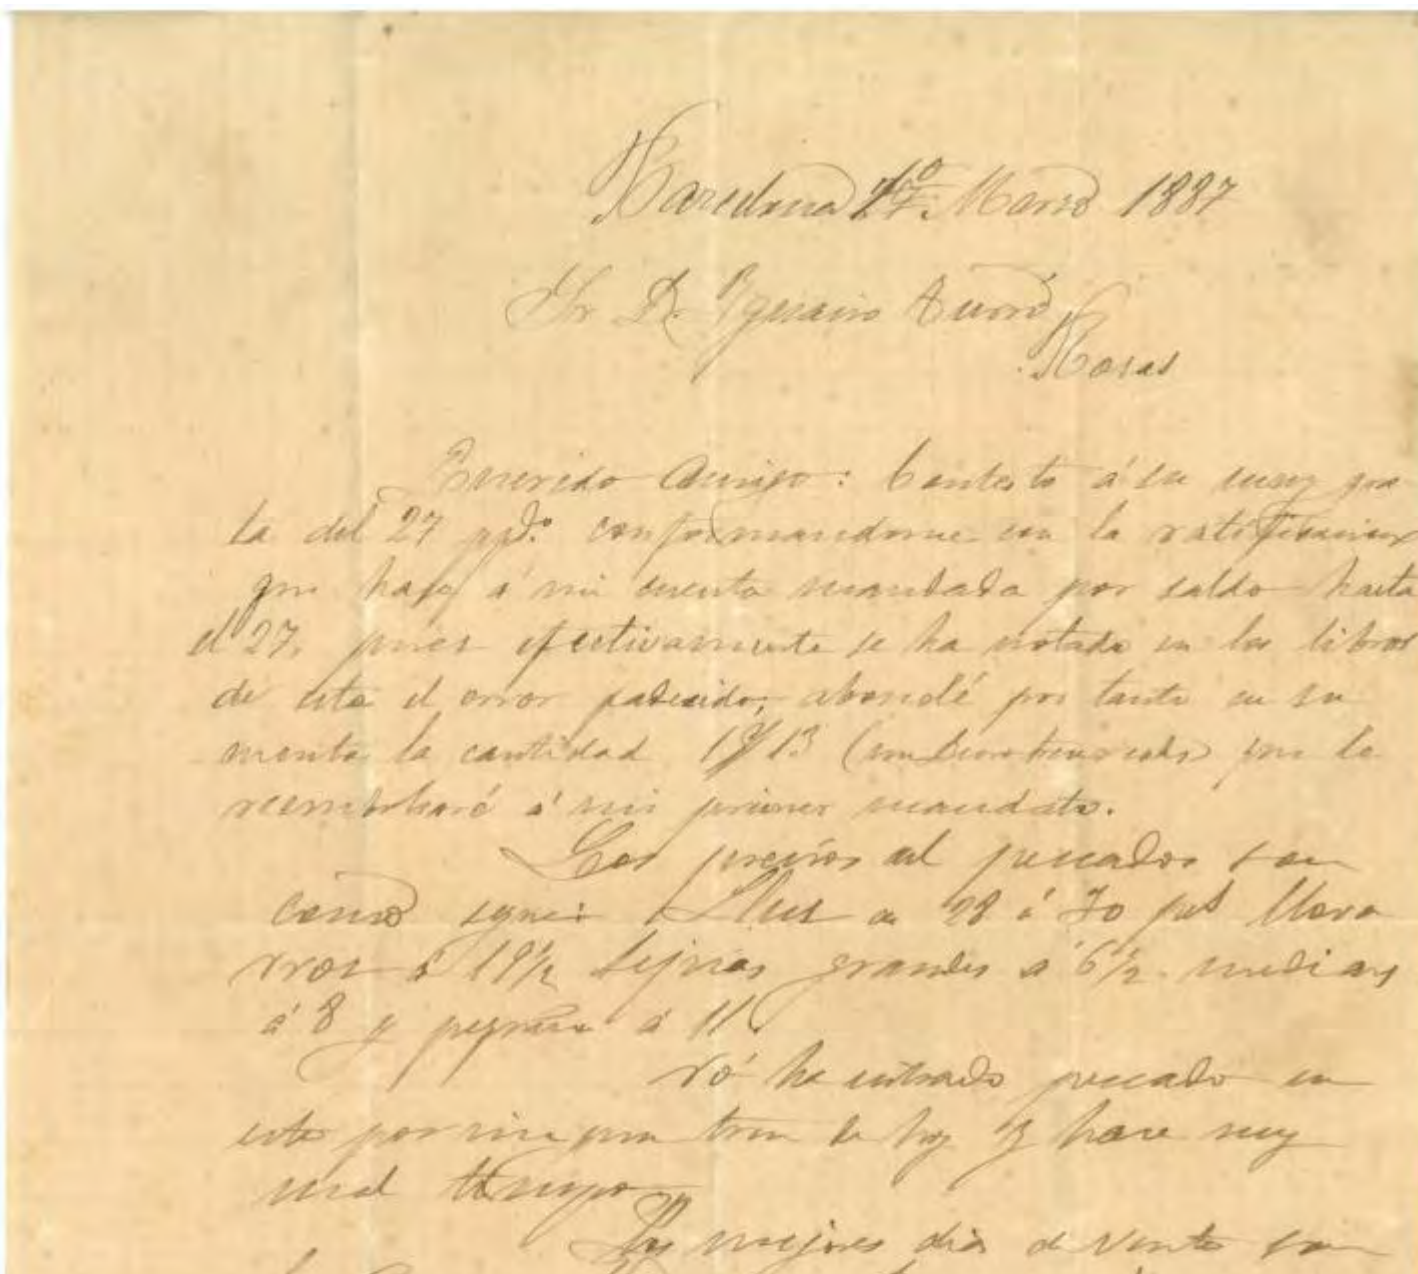 Barcelona 1º Marzo 1887
Sr. D. Ygnacio
Rosas
Querido Amigo: Contesto á su muy gra
ta del 27 ppdº. conformandome con la ratificacion
que hace á mi cuenta mandada por saldo hasta
el 27, pues efectivamente se ha notado en los libros
de esta el error padecido, aboné por tanto en su
cuenta la cantidad que le
reembolsaré á mi primer mandato.
Los precios del pescado son
como sigue: Llus de 28 á 30 pts Llova
rros á 19½ Sepias grandes á 6½ medianas
á 8 y pequeña á 11.
No ha entrado pescado en
esta por ningun tren de hoy y hace muy
mal tiempo
Los mejores dias de venta son